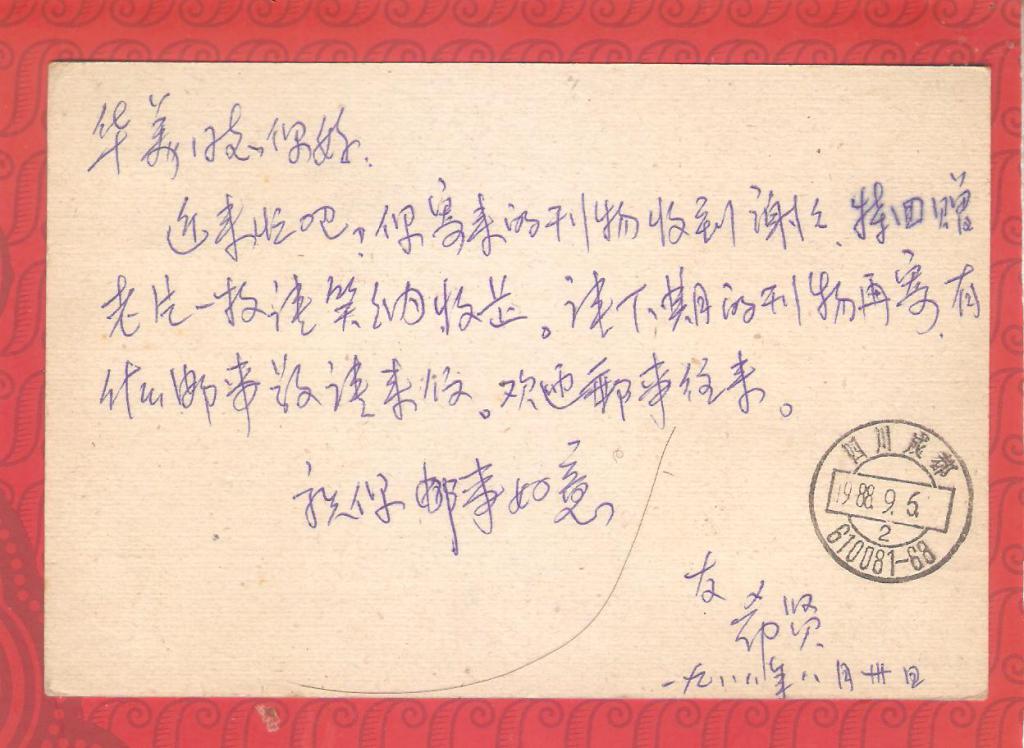 华美同志你好.
近来忙吧,你寄来的刊物收到谢々.特回赠
老片一枚请笑纳收。请下期的刊物再寄.有
什么邮事敬请来信。欢迎邮事往来。
祝你邮事如意
友
希贤
一九八八年八月卅日
四川成都
1988.9.5.
2
610081-68